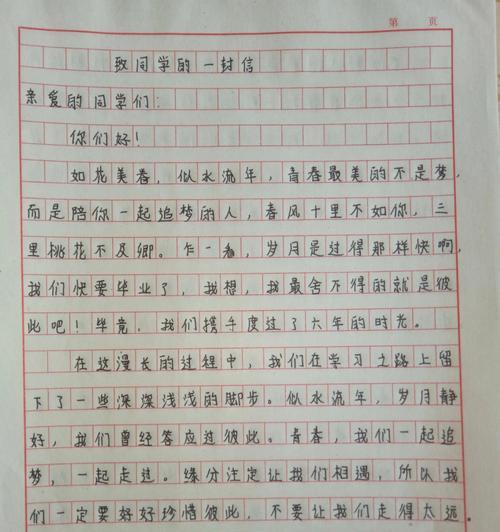 第 页
致同学的一封信
亲爱的同学们：
你们好！
如花美眷，似水流年，青春最美的不是梦，
而是陪你一起追梦的人，春风十里不如你，三
里桃花不及卿。乍一看，岁月是过得那样快啊，
我们快要毕业了，我想，我最舍不得的就是彼
此吧！毕竟，我们携手度过了六年的时光。
在这漫长的过程中，我们在学习之路上留
下了一些深深浅浅的脚步。似水流年，岁月静
好，我们曾经答应过彼此。青春，我们一起追
梦，一起走过。缘分注定让我们相遇，所以我
们一定要好好珍惜彼此，不要让我们走得太远